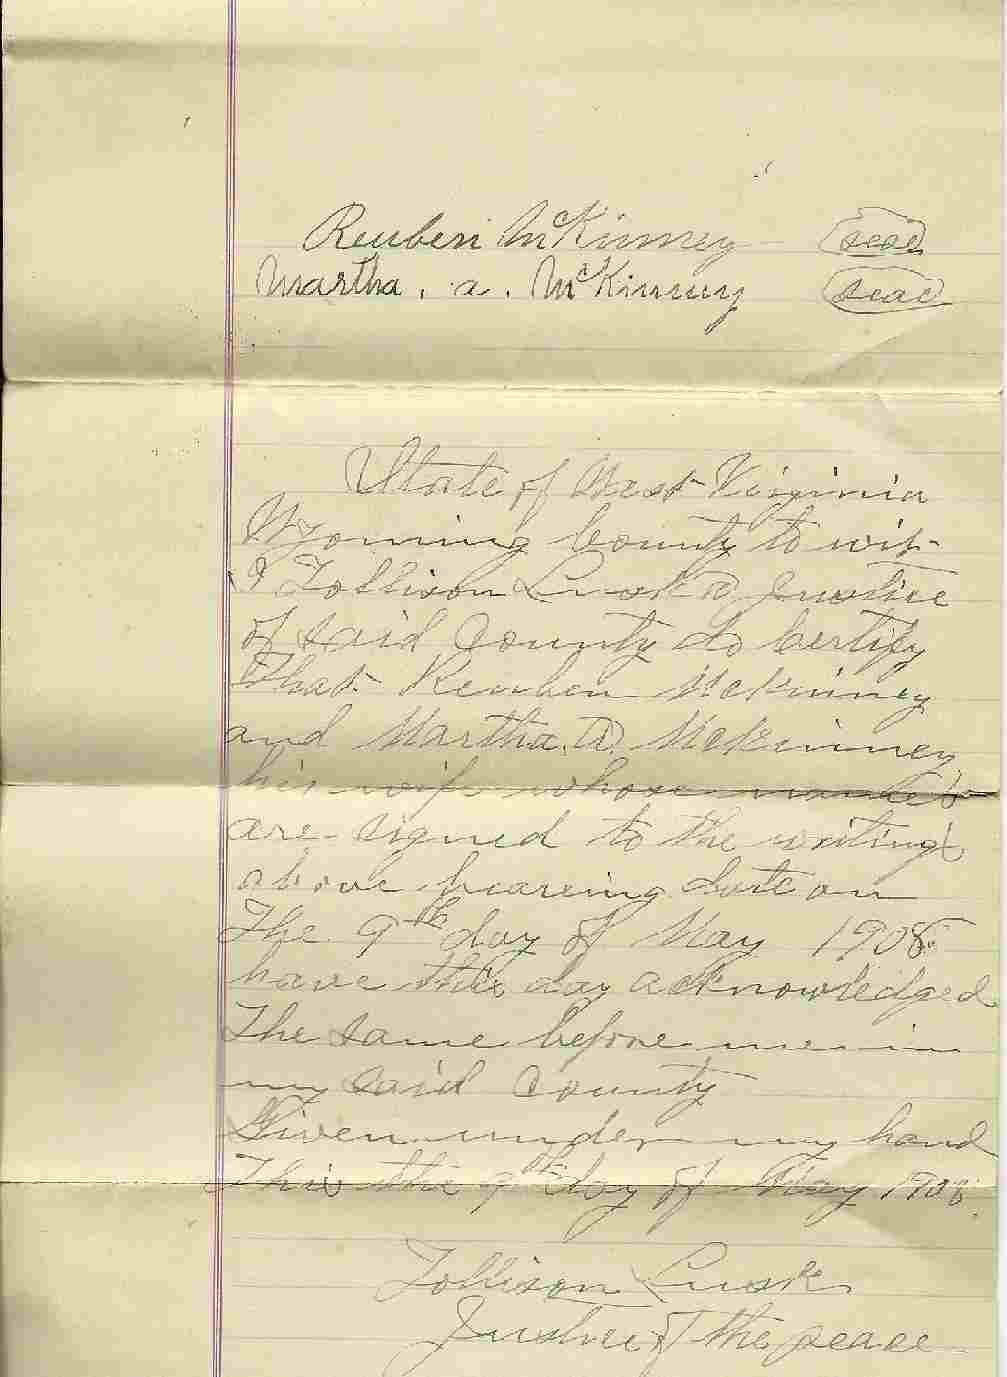 Reuben McKinney seal
Martha. a. McKinney seal
State of West Virginia
Wyoming County to wit
I Tollison Lusk a Justice
of said County do Certify
That Reuben McKinney
and Martha. A. McKinney
his wife whose names
are signed to the writing
above bearing date on
The 9th day of May 1908
have this day acknowledged
The same before me in
my said County
Given under my hand
This the 9th day of May 1908.
Tollison Lusk
Justice of the peace